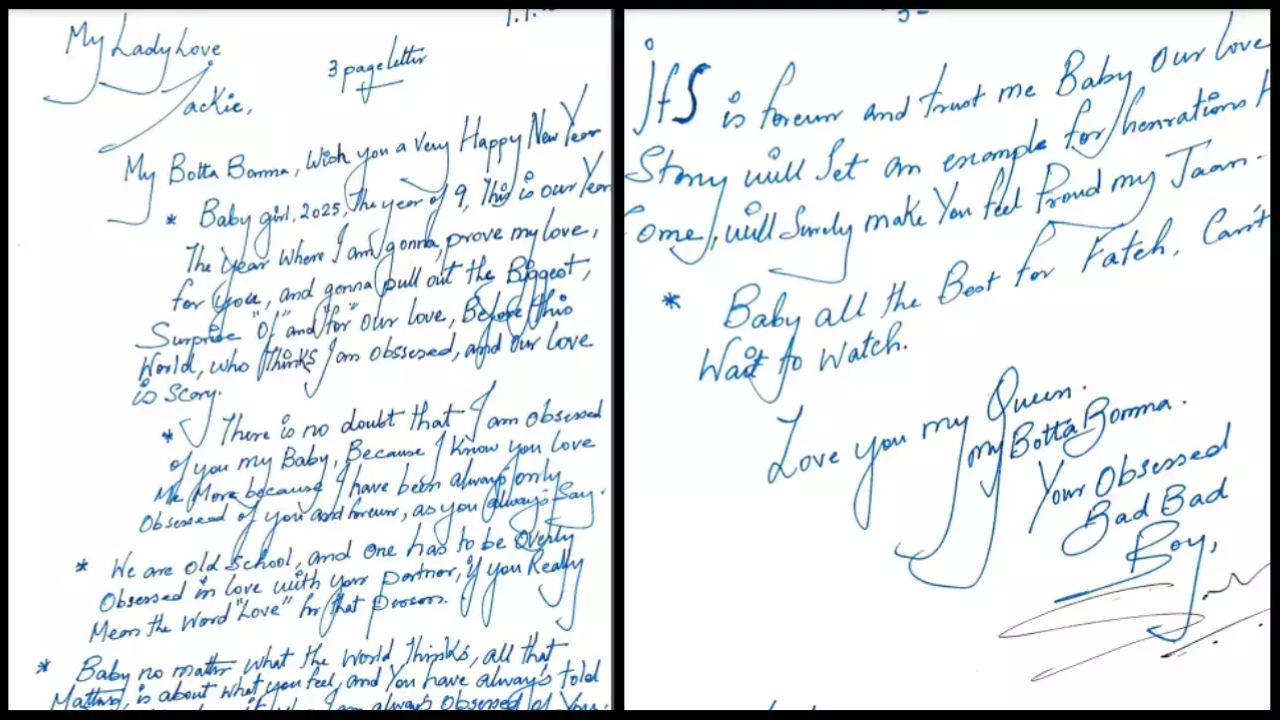 1.1.
My Lady Love
3 page letter
Jackie,
My Botta Bomma, Wish you a Very Happy New Year
* Baby girl, 2025, The year of 9, This is our Year
The Year where I am gonna, prove my love,
for you, and gonna pull out the Biggest,
Surprise "Of" and "for" Our love, Before this
World, who thinks I am Obssesed, and Our love
is Scary.
* There is no doubt that I am Obsessed
Of you my Baby, Because I Know you love
Me More because I have been always only
Obsessed of you and forever, as you always Say.
* We are Old School, and One has to be Overly
Obsessed in love with your partner, if you Really
Mean the Word "Love" for that person.
* Baby no matter what the World Thinks, all that
Matters, is about what you feel, and You have always told
I am always Obsessed of You.
3-
Its is forever and trust me Baby Our love
Story will Set an example for
Come, will Surely make You feel Proud my Jaan.
* Baby all the Best for Fateh, Can't
Wait to Watch.
Love you my Queen.
my Botta Bomma.
Your Obsessed
Bad Bad
Boy,